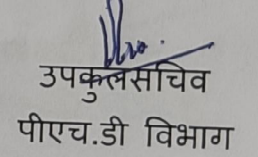 उपकुलसचिव
पीएच.डी विभाग